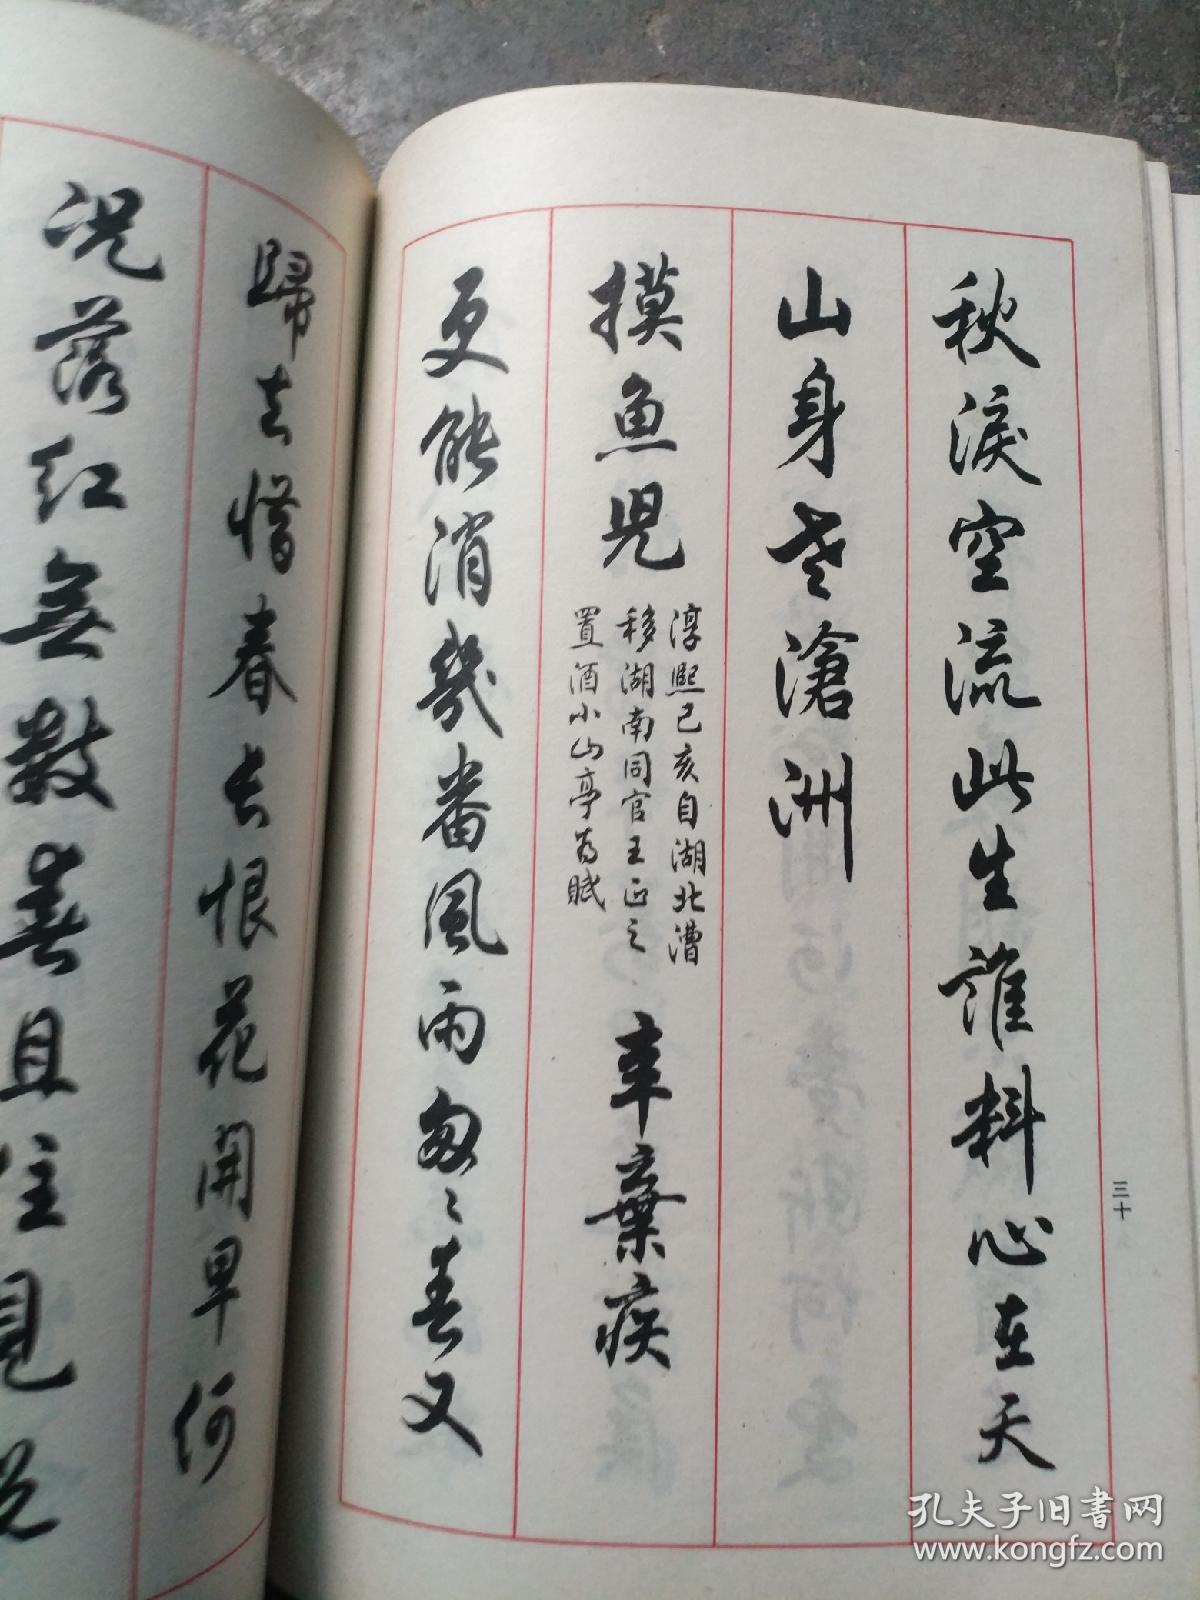 秋淚空流此生誰料心在天
山身老滄洲
摸魚児
淳熙己亥自湖北漕
移湖南同官王正之
置酒小山亭為賦
辛棄疾
更能消幾番風雨匆〻春又
歸去惜春長恨花開早何
況落紅無數春且住見說
三十
孔夫子旧书网
www.kongfz.com